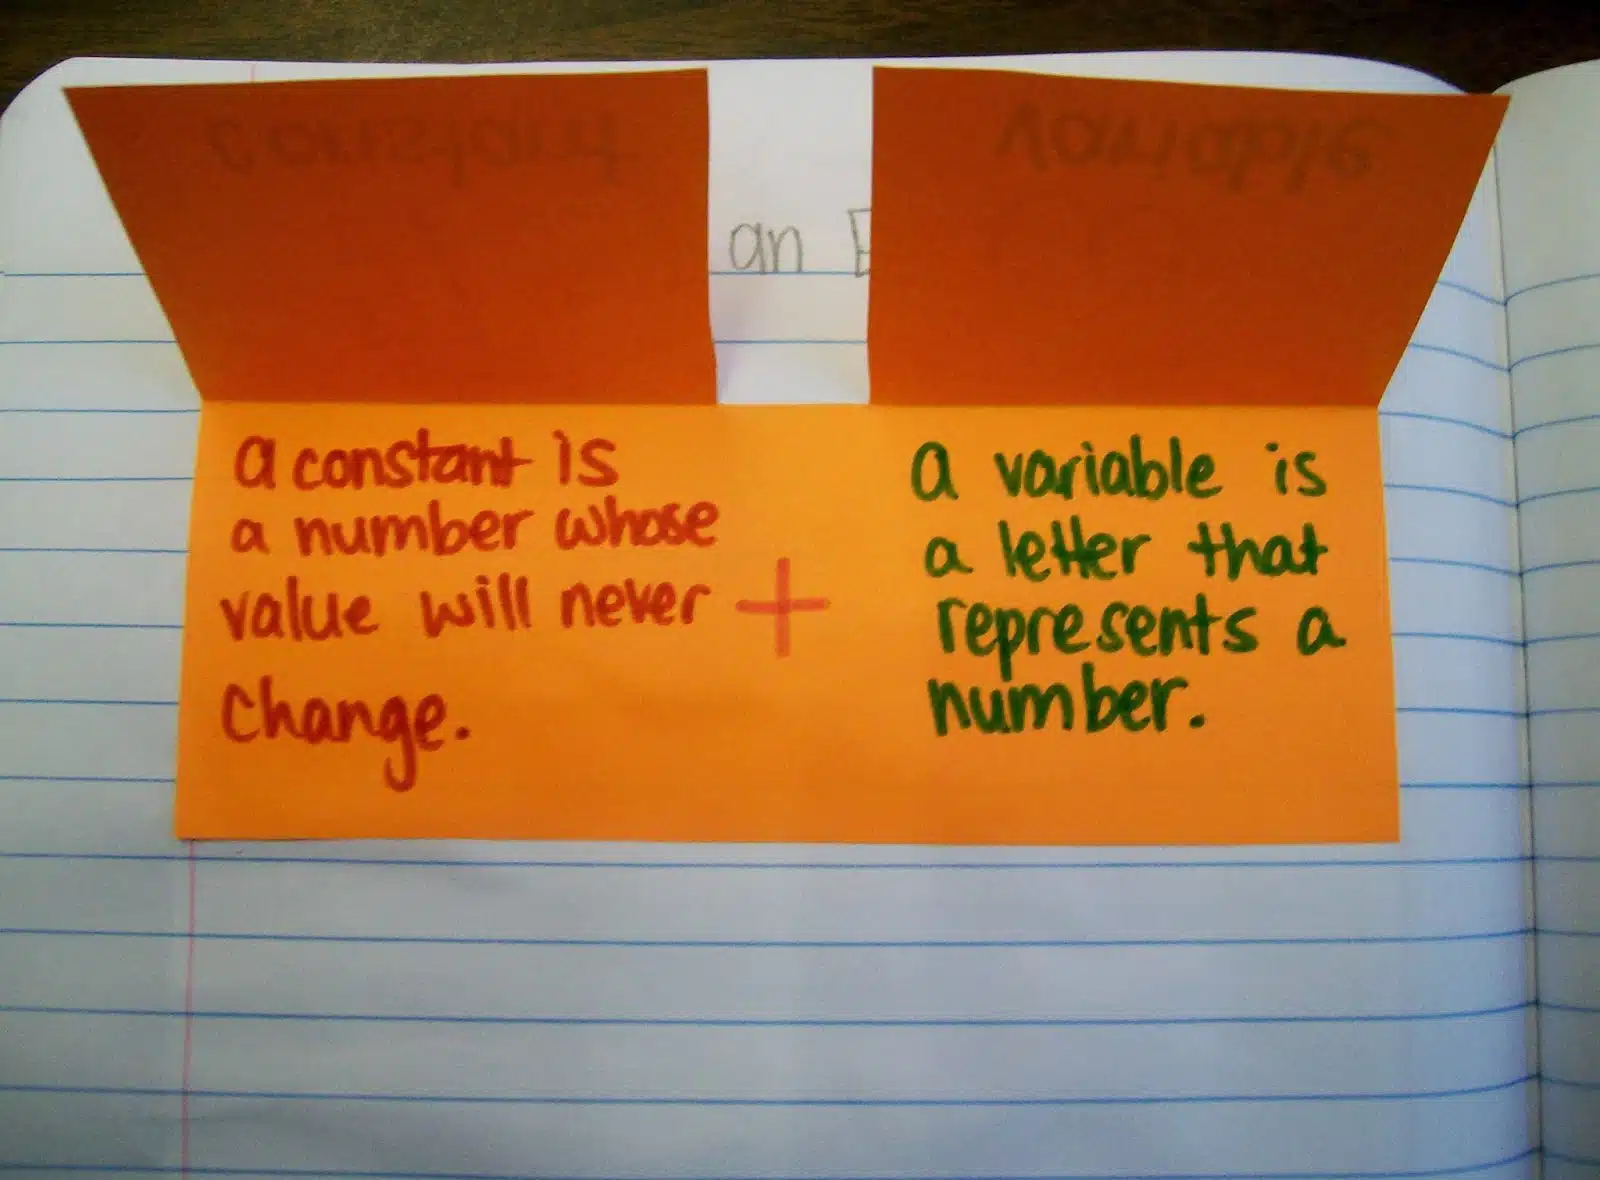 constant
variable
an E
a constant is
a number whose
value will never
change.
+
a variable is
a letter that
represents a
number.